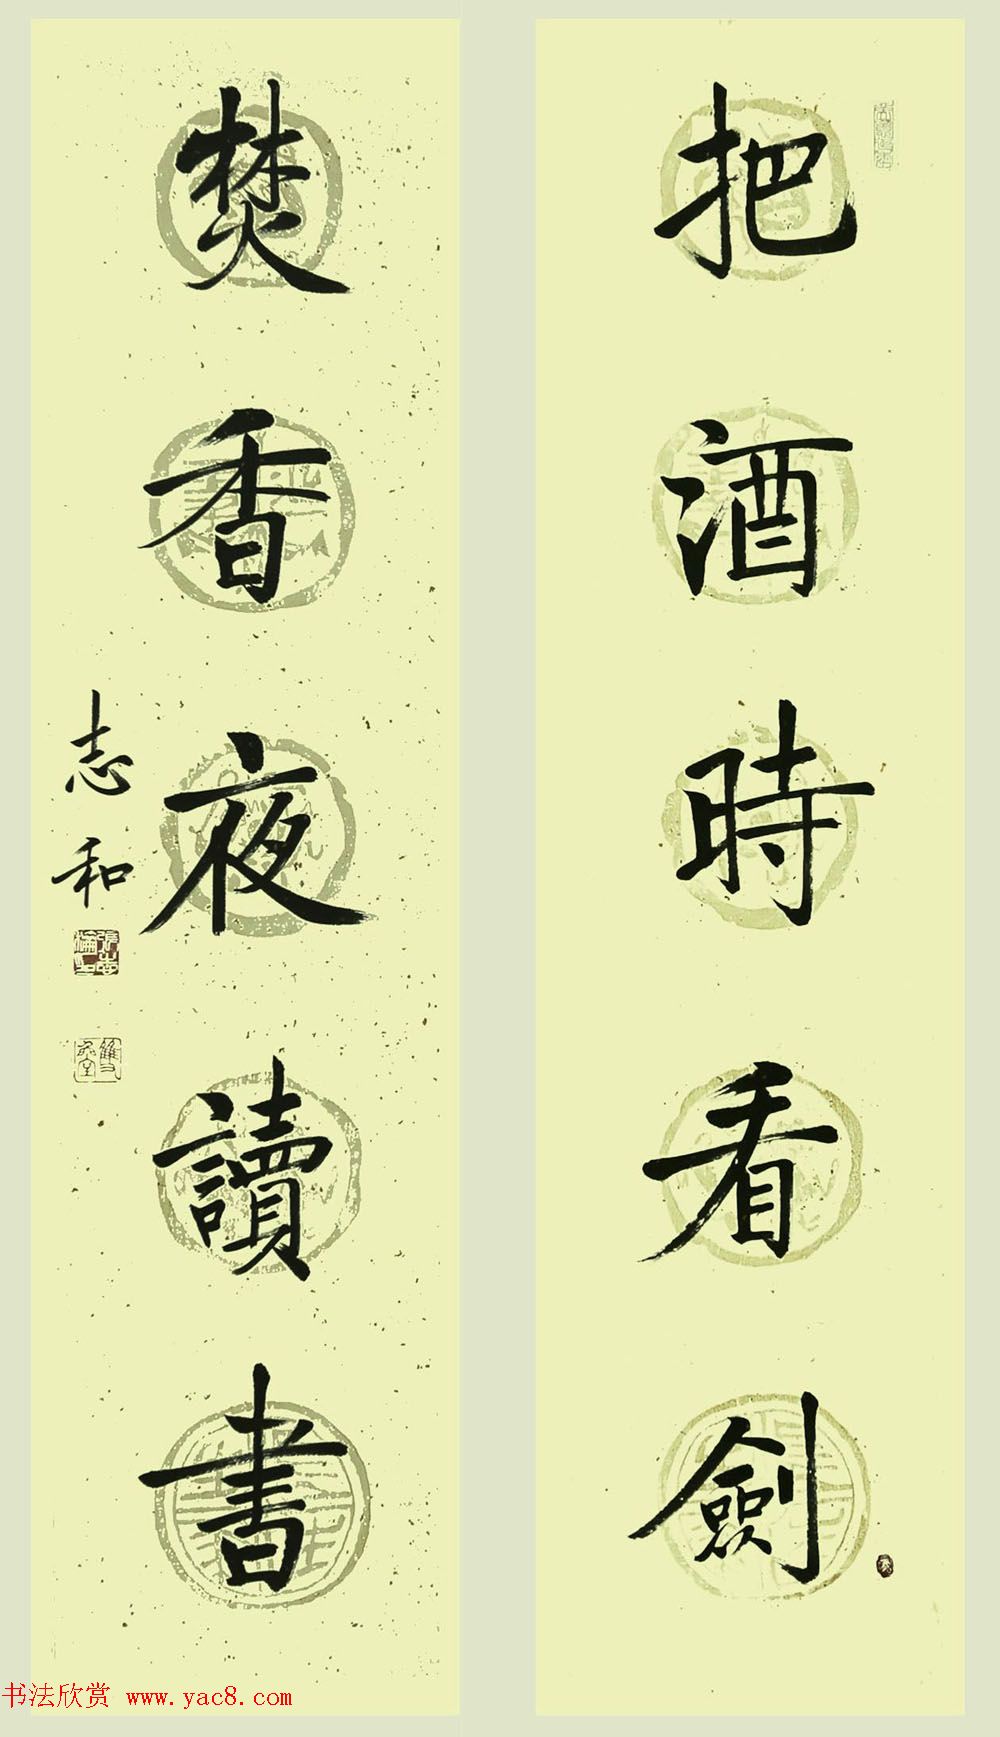 把酒時看劍
焚香夜讀書
志和
书法欣赏 www.yac8.com